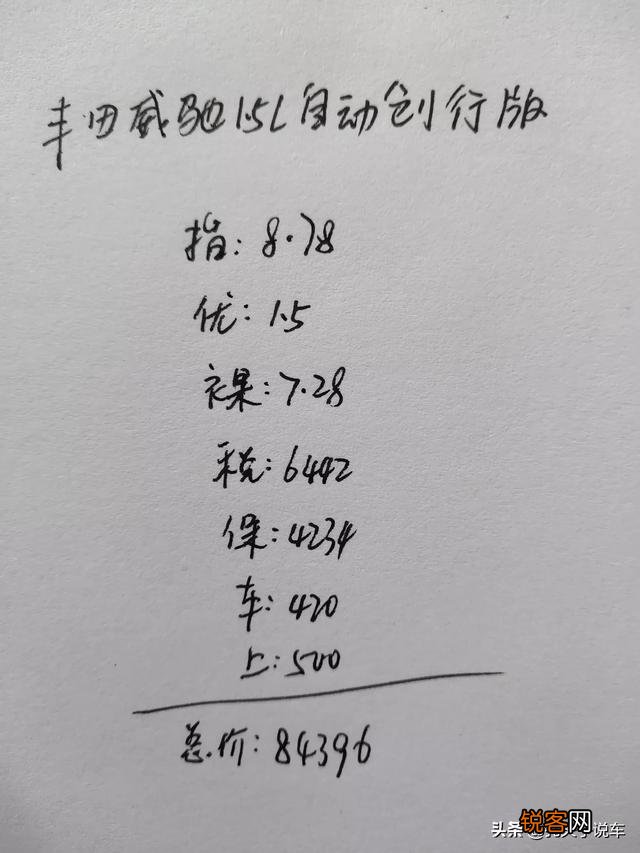 丰田威驰1.5L自动创行版
指:8.78
优:1.5
裸:7.28
税:6442
保:4234
车:420
上:500
总价:84396
锐客网
头条@说车